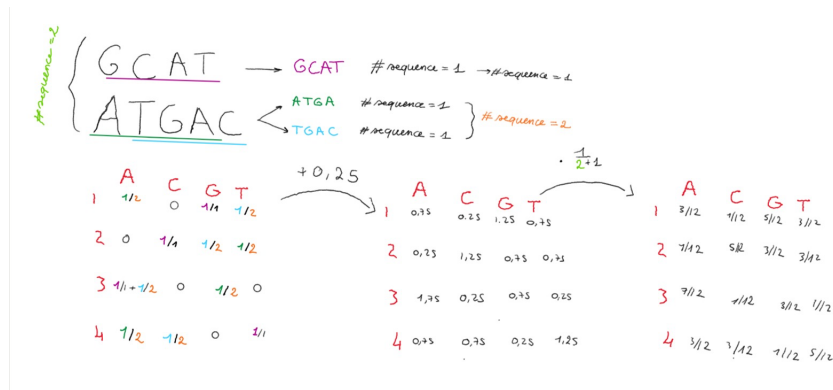 #sequence=2
GCAT → GCAT #sequence = 1 → #sequence = 1
ATGAC
ATGA #sequence = 1
TGAC #sequence = 1
#sequence = 2
+0,25
· 1/2+1
A C G T
1 1/2 0 1/1 1/2
2 0 1/1 1/2 1/2
3 1/1 + 1/2 0 1/2 0
4 1/2 1/2 0 1/1
A C G T
1 0,75 0.25 1.25 0,75
2 0,25 1,25 0,75 0,75
3 1,75 0,25 0,75 0,25
4 0,75 0,75 0,25 1,25
A C G T
1 3/12 1/12 5/12 3/12
2 1/12 3/12 3/12
3 7/12 1/12 3/12 1/12
4 3/12 3/12 1/12 5/12